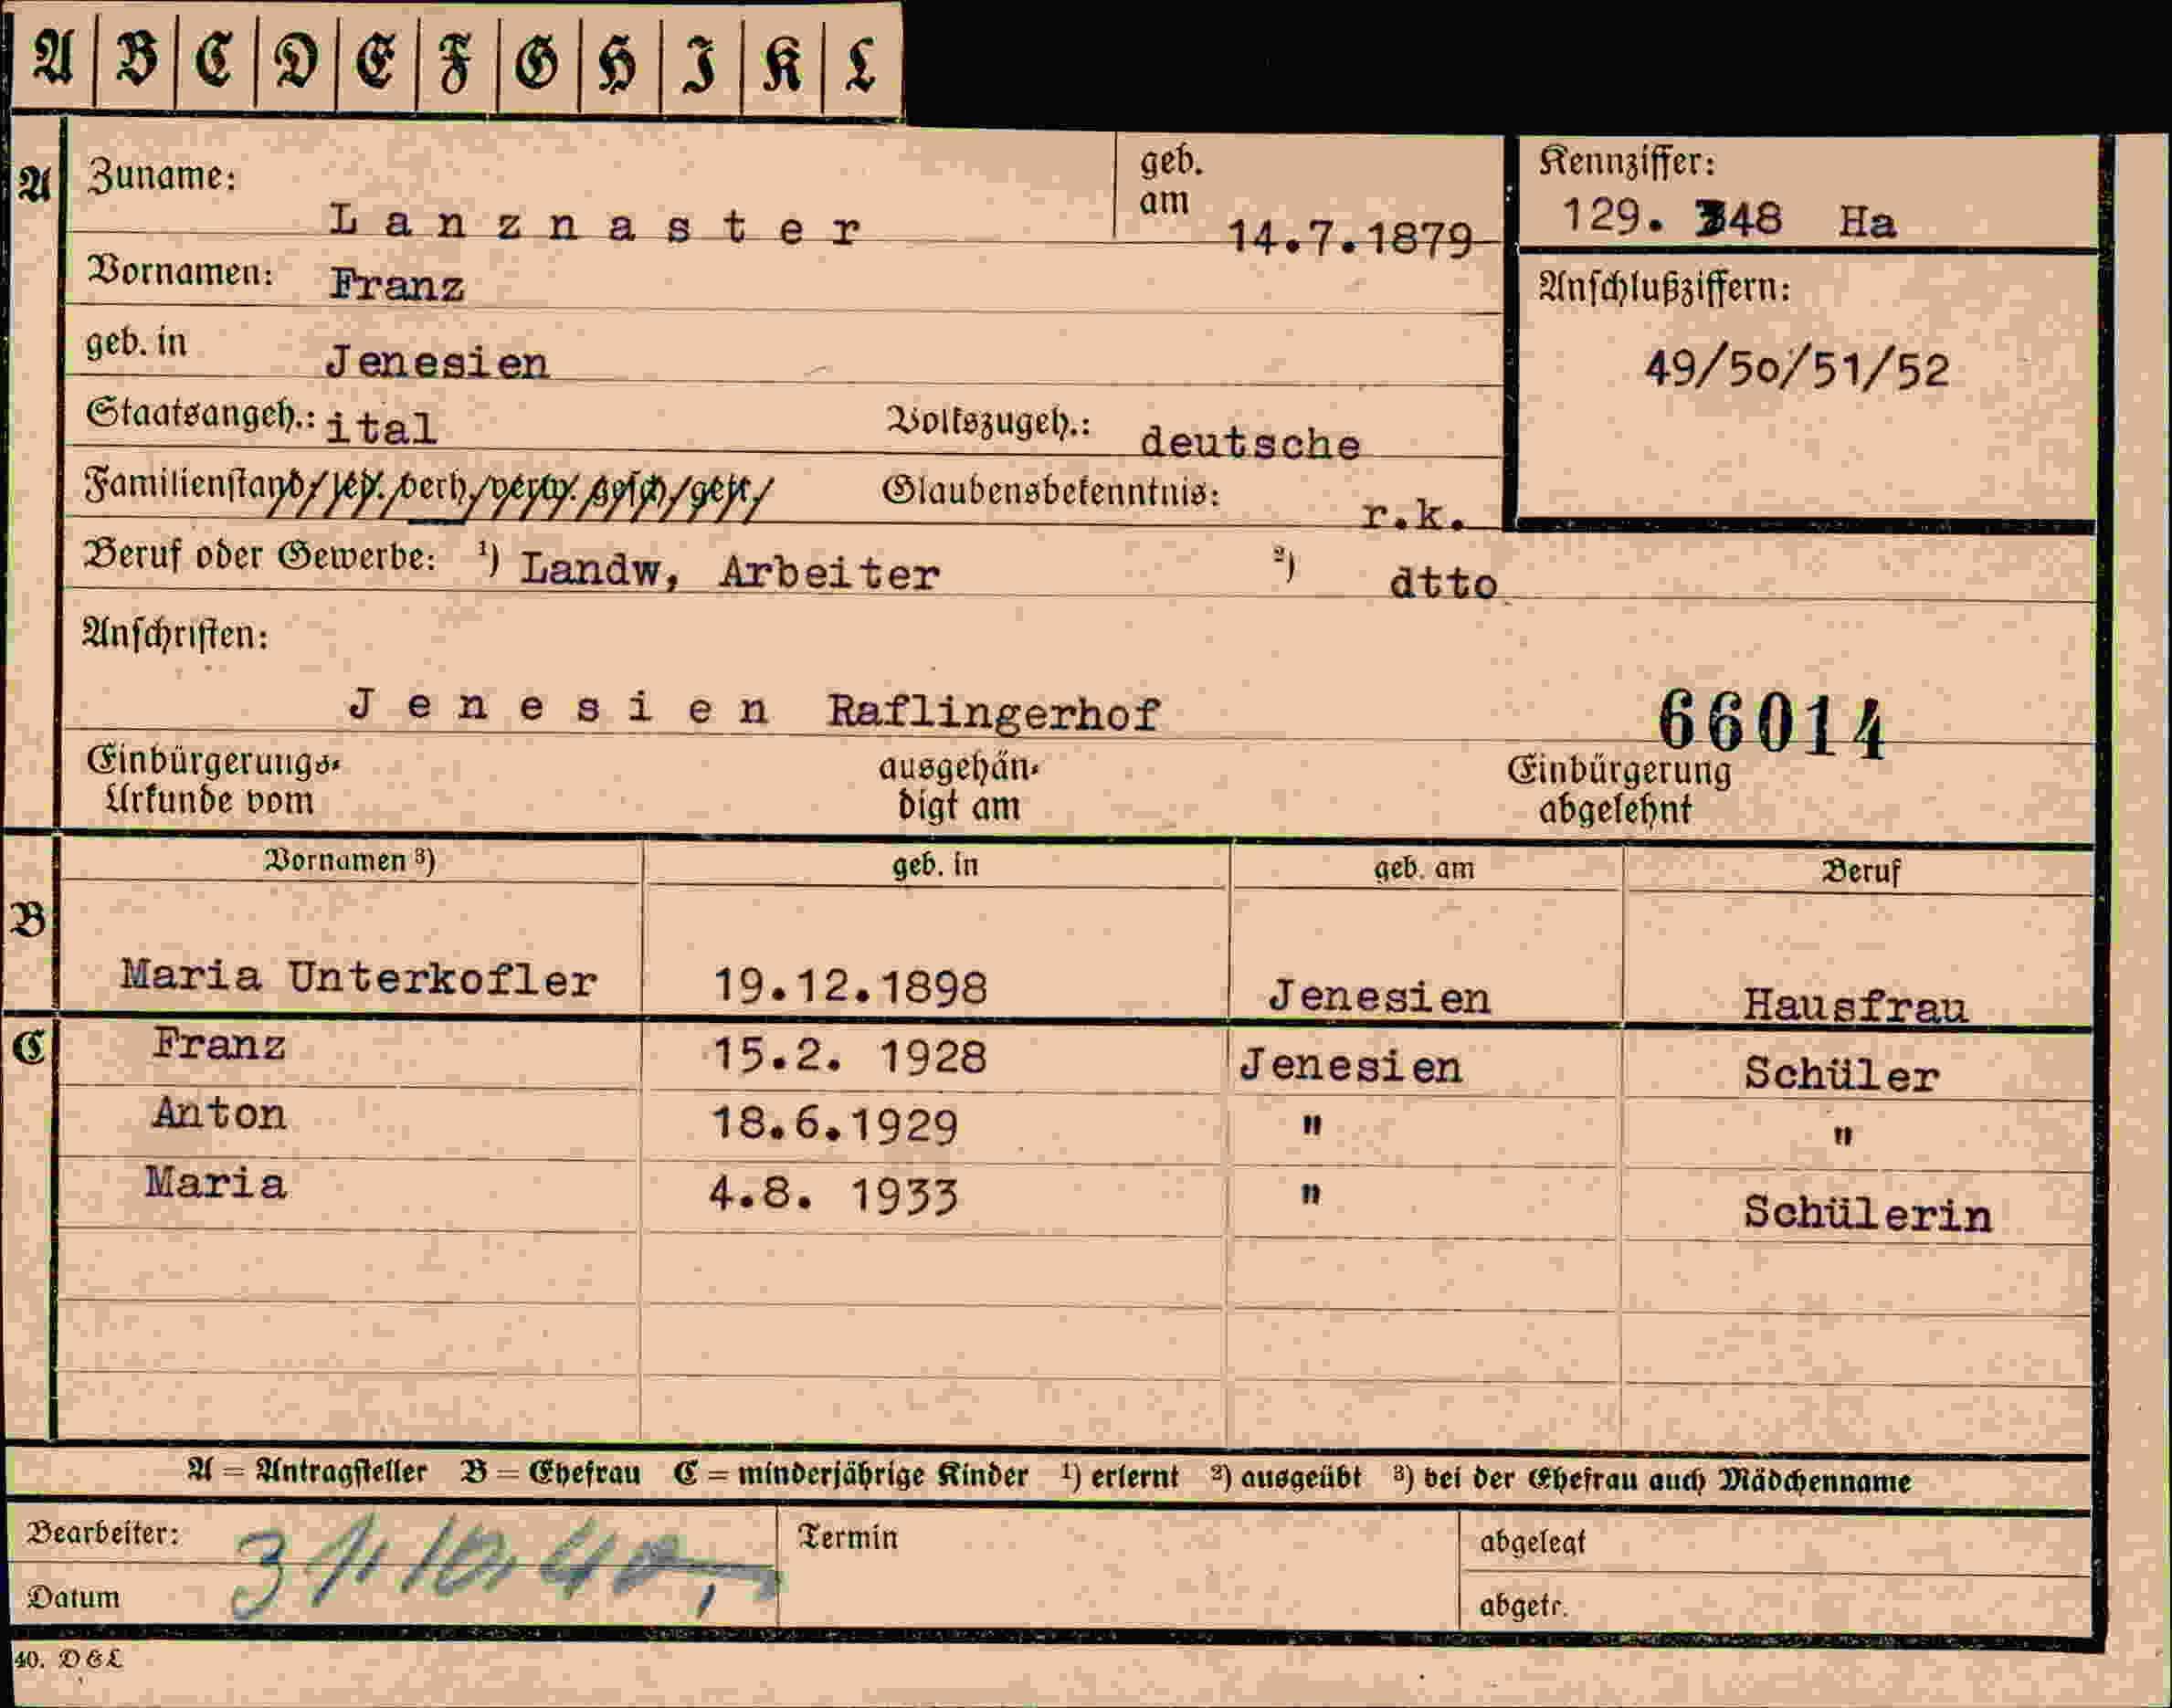 A B C D E F G H I K L
A Zuname: Lanznaster geb. am 14.7.1879
Kennziffer: 129. 348 Ha
Vornamen: Franz
Anschlußziffern: 49/50/51/52
geb. in Jenesien
Staatsangeh.: ital Volkszugeh.: deutsche
Familienstand/led./verh./verw./gesch./getr./ Glaubensbekenntnis: r.k.
Beruf oder Gewerbe: 1) Landw, Arbeiter 2) dtto
Anschriften:
Jenesien Raflingerhof 66014
Einbürgerungs- ausgehän- Einbürgerung
Urkunde vom digt am abgelehnt
Vornamen 3) geb. in geb. am Beruf
B
Maria Unterkofler 19.12.1898 Jenesien Hausfrau
C Franz 15.2. 1928 Jenesien Schüler
Anton 18.6.1929 " "
Maria 4.8. 1933 " Schülerin
A = Antragsteller B = Ehefrau C = minderjährige Kinder 1) erlernt 2) ausgeübt 3) bei der Ehefrau auch Mädchenname
Bearbeiter: Termin abgelegt
Datum 31.10.40, abgetr.
40. D&L